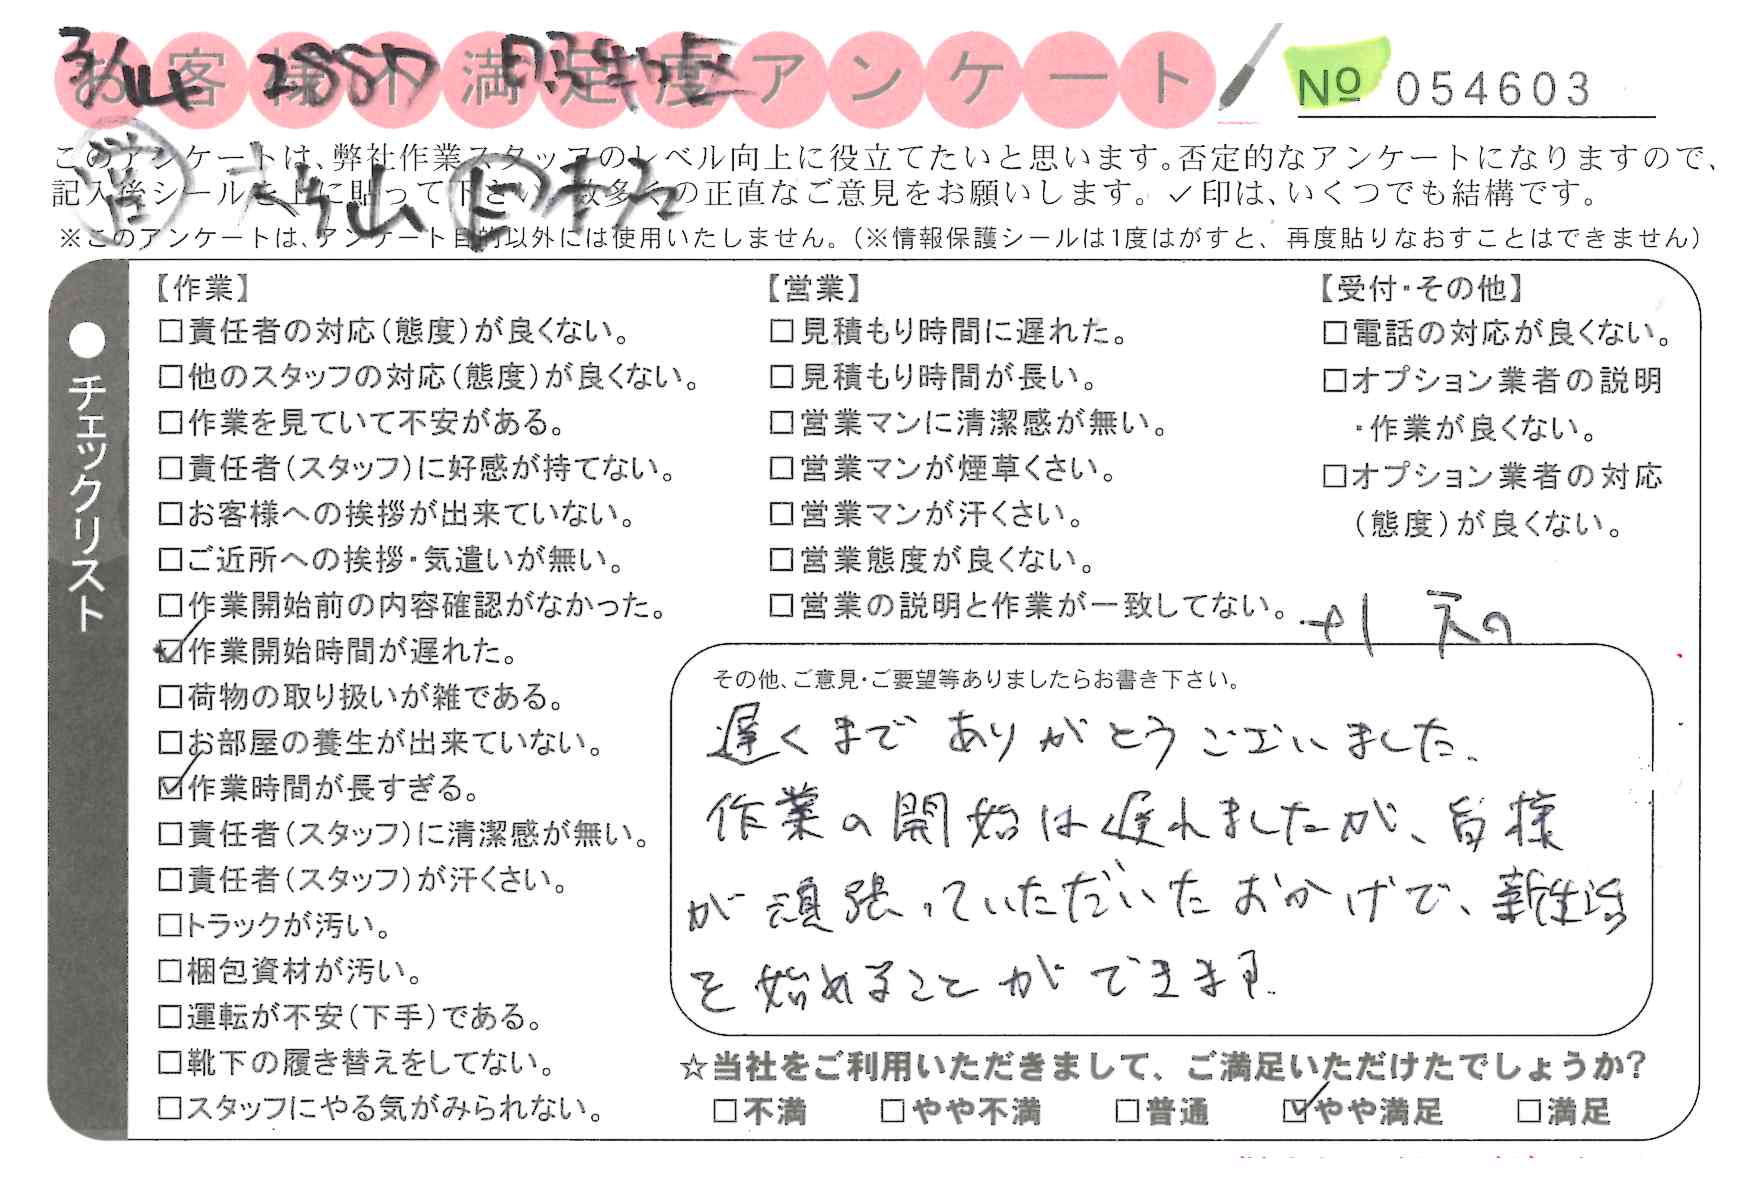 お客様不満足度アンケート
№ 054603
3/14
このアンケートは、弊社作業スタッフのレベル向上に役立てたいと思います。否定的なアンケートになりますので、
記入後シールを上に貼って下さい。数多くの正直なご意見をお願いします。✓印は、いくつでも結構です。
※このアンケートは、アンケート目的以外には使用いたしません。（※情報保護シールは1度はがすと、再度貼りなおすことはできません）
●チェックリスト
【作業】
□責任者の対応（態度）が良くない。
□他のスタッフの対応（態度）が良くない。
□作業を見ていて不安がある。
□責任者（スタッフ）に好感が持てない。
□お客様への挨拶が出来ていない。
□ご近所への挨拶・気遣いが無い。
□作業開始前の内容確認がなかった。
☑作業開始時間が遅れた。
□荷物の取り扱いが雑である。
□お部屋の養生が出来ていない。
☑作業時間が長すぎる。
□責任者（スタッフ）に清潔感が無い。
□責任者（スタッフ）が汗くさい。
□トラックが汚い。
□梱包資材が汚い。
□運転が不安（下手）である。
□靴下の履き替えをしてない。
□スタッフにやる気がみられない。
【営業】
□見積もり時間に遅れた。
□見積もり時間が長い。
□営業マンに清潔感が無い。
□営業マンが煙草くさい。
□営業マンが汗くさい。
□営業態度が良くない。
□営業の説明と作業が一致してない。
【受付・その他】
□電話の対応が良くない。
□オプション業者の説明
・作業が良くない。
□オプション業者の対応
（態度）が良くない。
その他、ご意見・ご要望等ありましたらお書き下さい。
遅くまでありがとうございました。
作業の開始は遅れましたが、皆様
が頑張っていただいたおかげで、新生活
を始めることができます。
☆当社をご利用いただきまして、ご満足いただけたでしょうか?
□不満 □やや不満 □普通 ☑やや満足 □満足